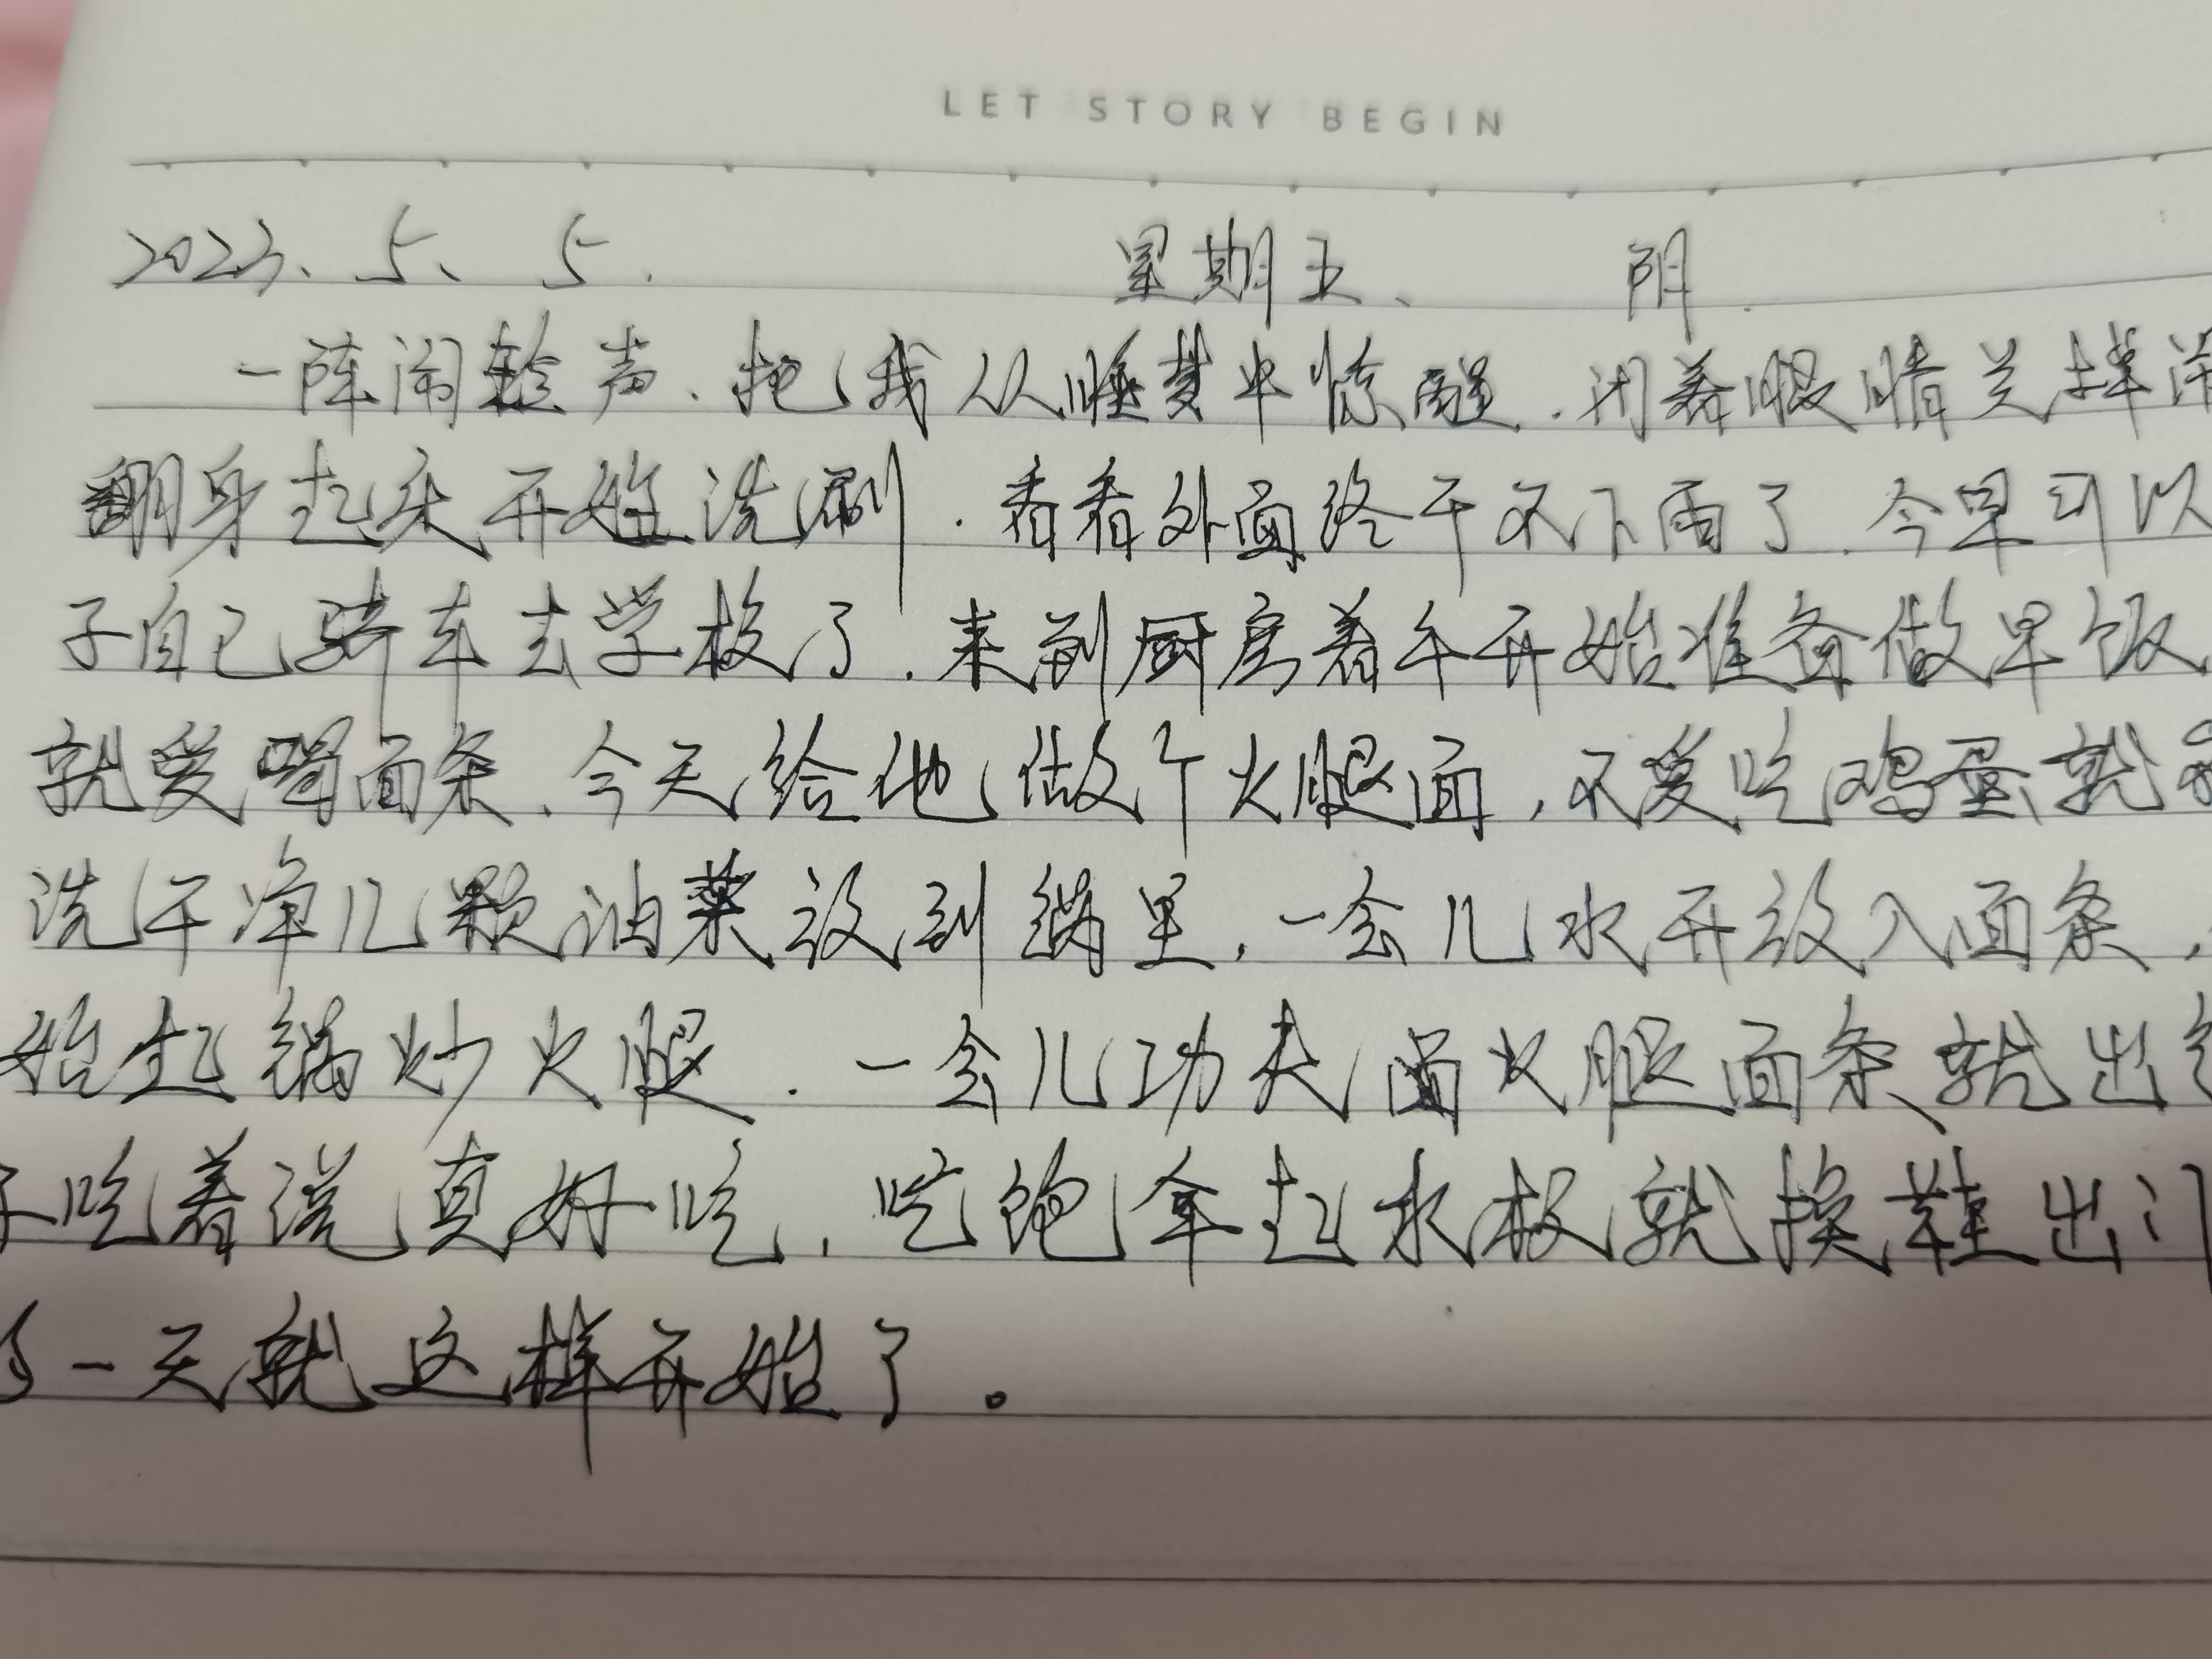 LET STORY BEGIN
2023、5、5.
星期五、 阴.
一阵闹铃声、把我从睡梦中惊醒.闭着眼睛关掉闹
翻身起床开始洗漱.看看外面终于不下雨了.今早可以
子自己骑车去学校了.来到厨房着手开始准备做早饭
就爱喝面条、今天给他做个火腿面,不爱吃鸡蛋就
洗干净几颗油菜放到锅里,一会儿水开放入面条,
始起锅炒火腿.一会儿功夫 火腿面条就出
子吃着说真好吃,吃饱拿起水杯就换鞋出门
一天就这样开始了。